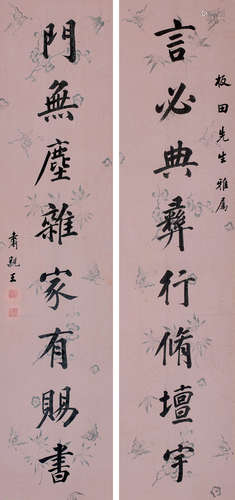 板田先生雅属
言必典彝行脩壇宇
門無塵雜家有賜書
肅親王